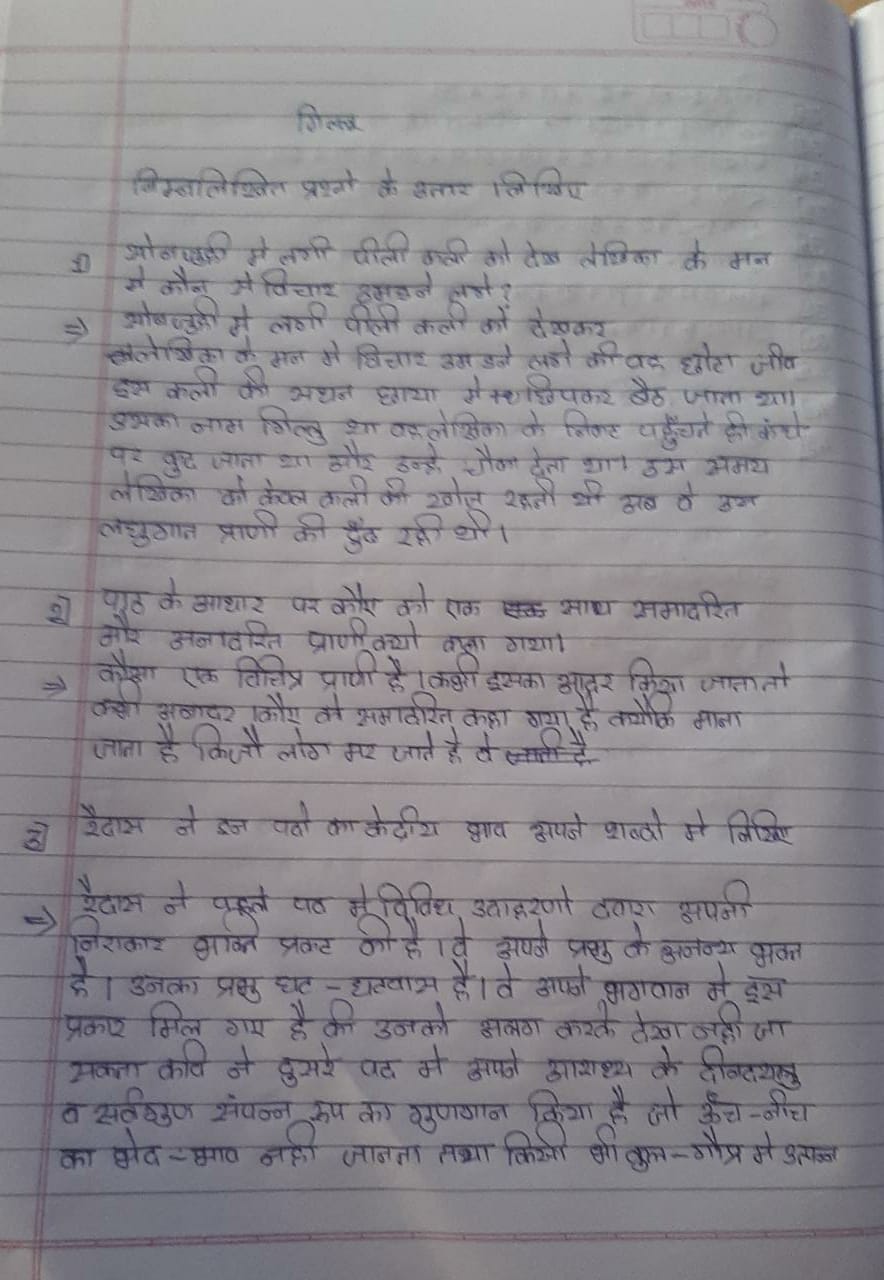 गिल्लू
निम्नलिखित प्रश्नो के उत्तर लिखिए
1) सोनजुही मे लगी पीली कली को देख लेखिका के मन
मे कौन से विचार उमडने लगे?
⇒ सोनजुही मे लगी पीली कली को देखकर
लेखिका के मन मे विचार उमडने लगे की वह छोटा जीव
इस कली की सघन छाया मे छिपकर बैठ जाता था।
उसका नाम गिल्लु था वह लेखिका के निकट पहुँचते ही कंधे
पर कुद जाता था और उन्हे चौका देता था। उस समय
लेखिका को केवल कली की खोज रहती थी अब वे उस
लघुगात प्राणी की ढुँढ रही थी।
2) पाठ के आधार पर कौए को एक साथ समादरित
और अनादरित प्राणी क्यो कहा गया।
⇒ कौआ एक विचित्र प्राणी है। कभी इसका आदर किया जाता तो
कभी अनादर। कौए को समादरित कहा गया है क्योकि माना
जाता है कि जो लोग मर जाते है वे
3) रैदास ने इन पदो का केद्रीय भाव अपने शब्दो मे लिखिए
⇒ रैदास ने पहले पद मे विविध उदाहरणो द्वारा अपनी
निराकार भक्ति प्रकट की है। वे अपने प्रभु के अनन्य भक्त
है। उनका प्रभु घट - घटवास है। वे अपने भगवान मे इस
प्रकार मिल गए है की उनको अलग करके देखा नही जा
सकता कवि ने दुसरे पद मे अपने आराध्य के दीनदयालु
व सर्वगुण संपन्न रूप का गुणगान किया है जो ऊँच - नीच
का भेद - भाव नही जानता तथा किसी भी कुल - गौत्र मे उत्पन्न